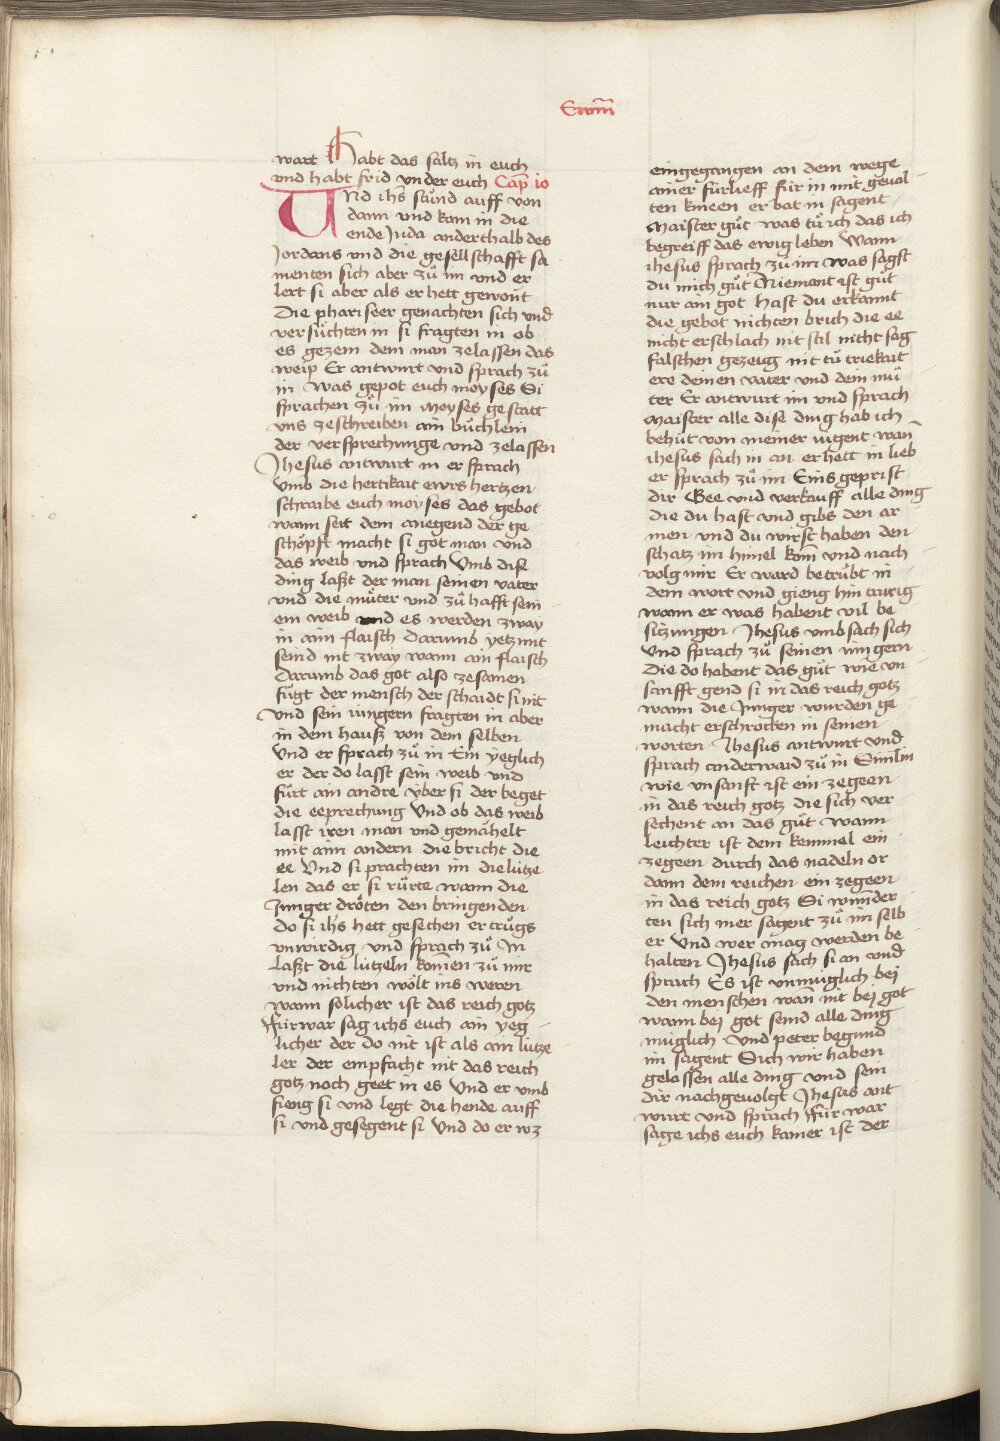 Ewm̃
wart Habt das saltz in euch
vnd habt frid vnder euch Cap̃ io
VNd ih̃s stůnd auff von
dann vnd kam in die
ende Juda anderthalb des
Jordans vnd die gesellschafft sa
menten sich aber zů im vnd er
lert si aber als er hett gewont
Die phariseer genachten sich vnd
versůchten in si fragten in ob
es gezem dem man zelassen das
weip Er antwurt vnd sprach zů
in Was gepot euch moyses Si
sprachen zů im Moyses gestatt
vns zeschreiben ain bůchlein
der versprechunge vnd zelassen
Jhesus antwurt in er sprach
Vmb die hertikait ewrs hertzen
schraibe euch moyses das gebot
wann seit dem anegend der ge
schöpft macht si got man vnd
das weib vnd sprach Vmb dise
ding laßt der man seinen vater
vnd die můter vnd zů hafft sein
em weib vnd es werden zway
in aim flaisch Darumb yetzunt
seind nit zway wann ain flaisch
Darumb das got also zesamen
fůgt der mensch der schaidt si nit
Vnd sein iungern fragten in aber
in dem hauß von dem selben
Vnd er sprach zů in Ein yeglich
er der do lasst sein weib vnd
fůrt ain andre yber si der beget
die eeprechung Vnd ob das weib
lasst iren man vnd gemähelt
mit aim andern die bricht die
ee Vnd si prachten im die lütze
len das er si růrte wann die
Junger dröten den bringenden
Do si ih̃s hett gesechen er trůgs
vnwirdig vnd sprach zů In
Laßt die lützeln kom̃en zů mir
vnd nichten wölt ins weren
wann solicher ist das reich gotz
Fürwar sag ichs euch ain yeg
licher der do nit ist als ain lütze
ler der empfacht nit das reich
gotz noch geet in es Vnd er vmb
fieng si vnd legt die hende auff
si vnd gesegent si Vnd do er wz
eingegangen an dem wege
ainer fürlieff für in mit geual
ten knieen er bat in sagent
Maister gůt was tů ich das ich
begreiff das ewig leben Wann
ihesus sprach zů im was sagst
du mich gůt Niemant ist gůt
nur ain got Hast du erkannt
die gebot nichten brich die ee
nicht erschlach nit stil nicht sag
falschen gezeug nit tů triekait
ere deinen vater vnd dein mů
ter Er antwurt im vnd sprach
Maister alle dise ding hab ich
behüt von meiner iugent wañ
ihesus sach in an er hett in lieb
er sprach zů im Eins geprist
dir Gee vnd verkauff alle ding
die du hast vnd gibs den ar
men vnd du wirst haben den
schatz im himel kom̃ vnd nach
volg mir Er ward betrůbt in
dem wort vnd gieng hin traurig
wann er was habent vil be
sitzungen Jhesus vmb sach sich
vnd sprach zů seinen iungern
Die do habent das gůt wie vn
sanfft gend si in das reich gotz
wann die Junger wurden ge
macht erschrocken in seinen
worten Jhesus antwurt vnd
sprach anderwaid zů in Sünlin
wie vnsanft ist ein zegeen
in das reich gotz die sich ver
sechent an das gůt wann
leichter ist dem kemmel ein
zegeen durch das nadeln or
dann dem reichen ein zegeen
in das reich gotz Si wunder
ten sich mer sagent zů im selb
er Vnd wer mag werden be
halten Jhesus sach si an vnd
sprach Es ist vnmüglich bei
den menschen wañ nit bei got
wann bei got seind alle ding
müglich Vnd peter begund
im sagent Sich wir haben
gelassen alle ding vnd sein
dir nachgeuolgt Jhesus ant
wurt vnd sprach Für war
sage ichs euch kainer ist der